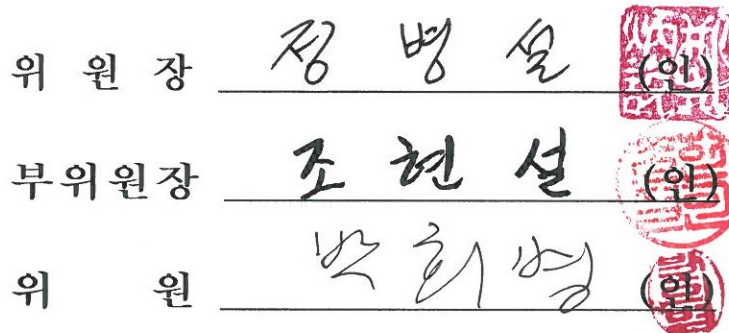 위 원 장 정 병 설 (인)
부위원장 조 현 설 (인)
위 원 박 희 병 (인)